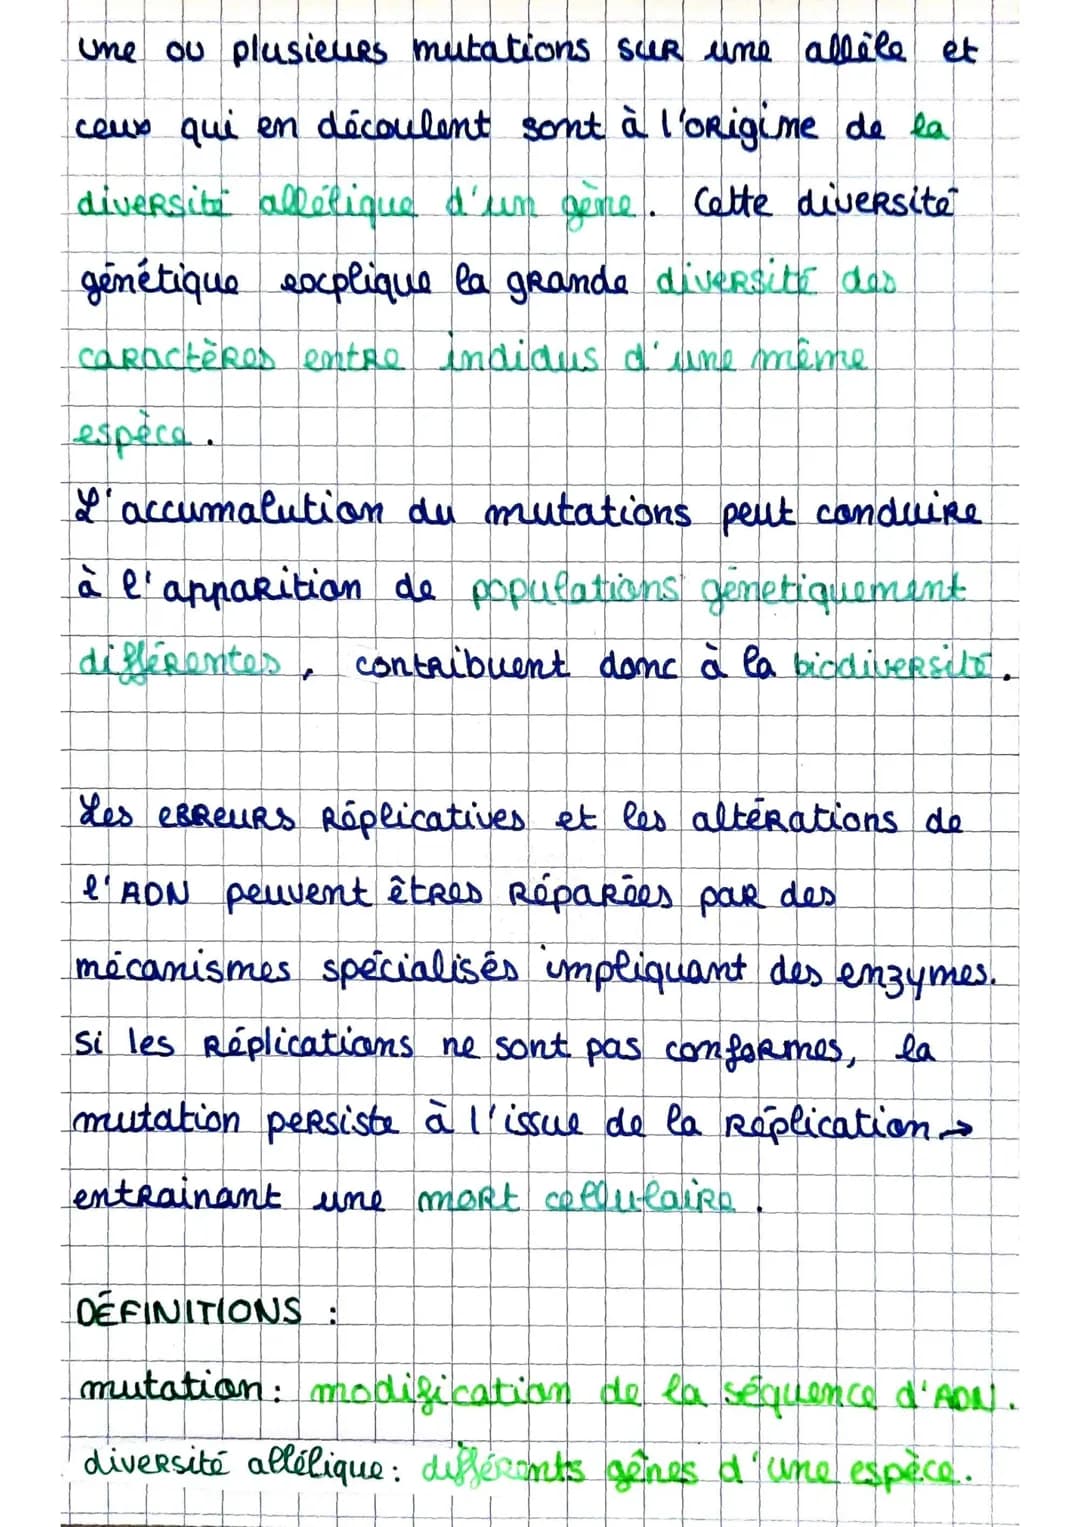 une ou plusieurs mutations sur une allèle et
ceux qui en découlent sont à l'origine de la
diversité allélique d'un gène. Cette diversité
génétique explique la grande diversité des
caractères entre indidus d'une même
espèce.
L'accumalution du mutations peut conduire
à l'apparition de populations génetiquement
différentes, contribuent donc à la biodiversité.
Les erreurs réplicatives et les altérations de
l'ADN peuvent êtres réparées par des
mécanismes spécialisés impliquant des enzymes.
Si les réplications ne sont pas conformes, la
mutation persiste à l'issue de la réplication →
entrainant une mort cellulaire.
DÉFINITIONS :
mutation: modification de la séquence d'ADN.
diversité allélique: différents gênes d'une espèce.